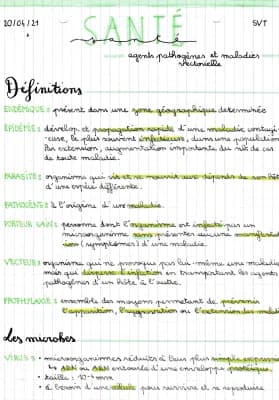 SANTÉ
10/04/21 santé SVT
agents pathogènes et maladies
vectorielles
Définitions
ENDÉMIQUE : présent dans une zone géographique déterminée
EPIDÉMIE : dévelop. et propagation rapide d'une maladie contagi-
euse, le plus souvent infectieuse, dans une population.
Par extension, augmentation importante du nb de cas
de toute maladie.
PARASITE : organisme qui vit et se nourrit aux dépends de son hôte
d'une espèce différente.
PATHOGÈNE : à l'origine d'une maladie.
PORTEUR SAIN : personne dont l'organisme est infecté par un
microorganisme sans présenter aucune manifestat-
ion (symptômes) d'une maladie.
VECTEUR : organisme qui ne provoque pas lui-même une maladie
mais qui disperse l'infection en transportant les agents
pathogènes d'un hôte à l'autre.
PROPHYLAXIE : ensemble des moyens permettant de prévenir
l'apparition, l'aggravation ou l'extension des maladies
Les microbes
VIRUS : • microorganismes réduits à leur plus simple expression
↳ ADN ou ARN entourée d'une enveloppe protéique.
• taille :
• a besoin d'une cellule pour survivre et se reproduire